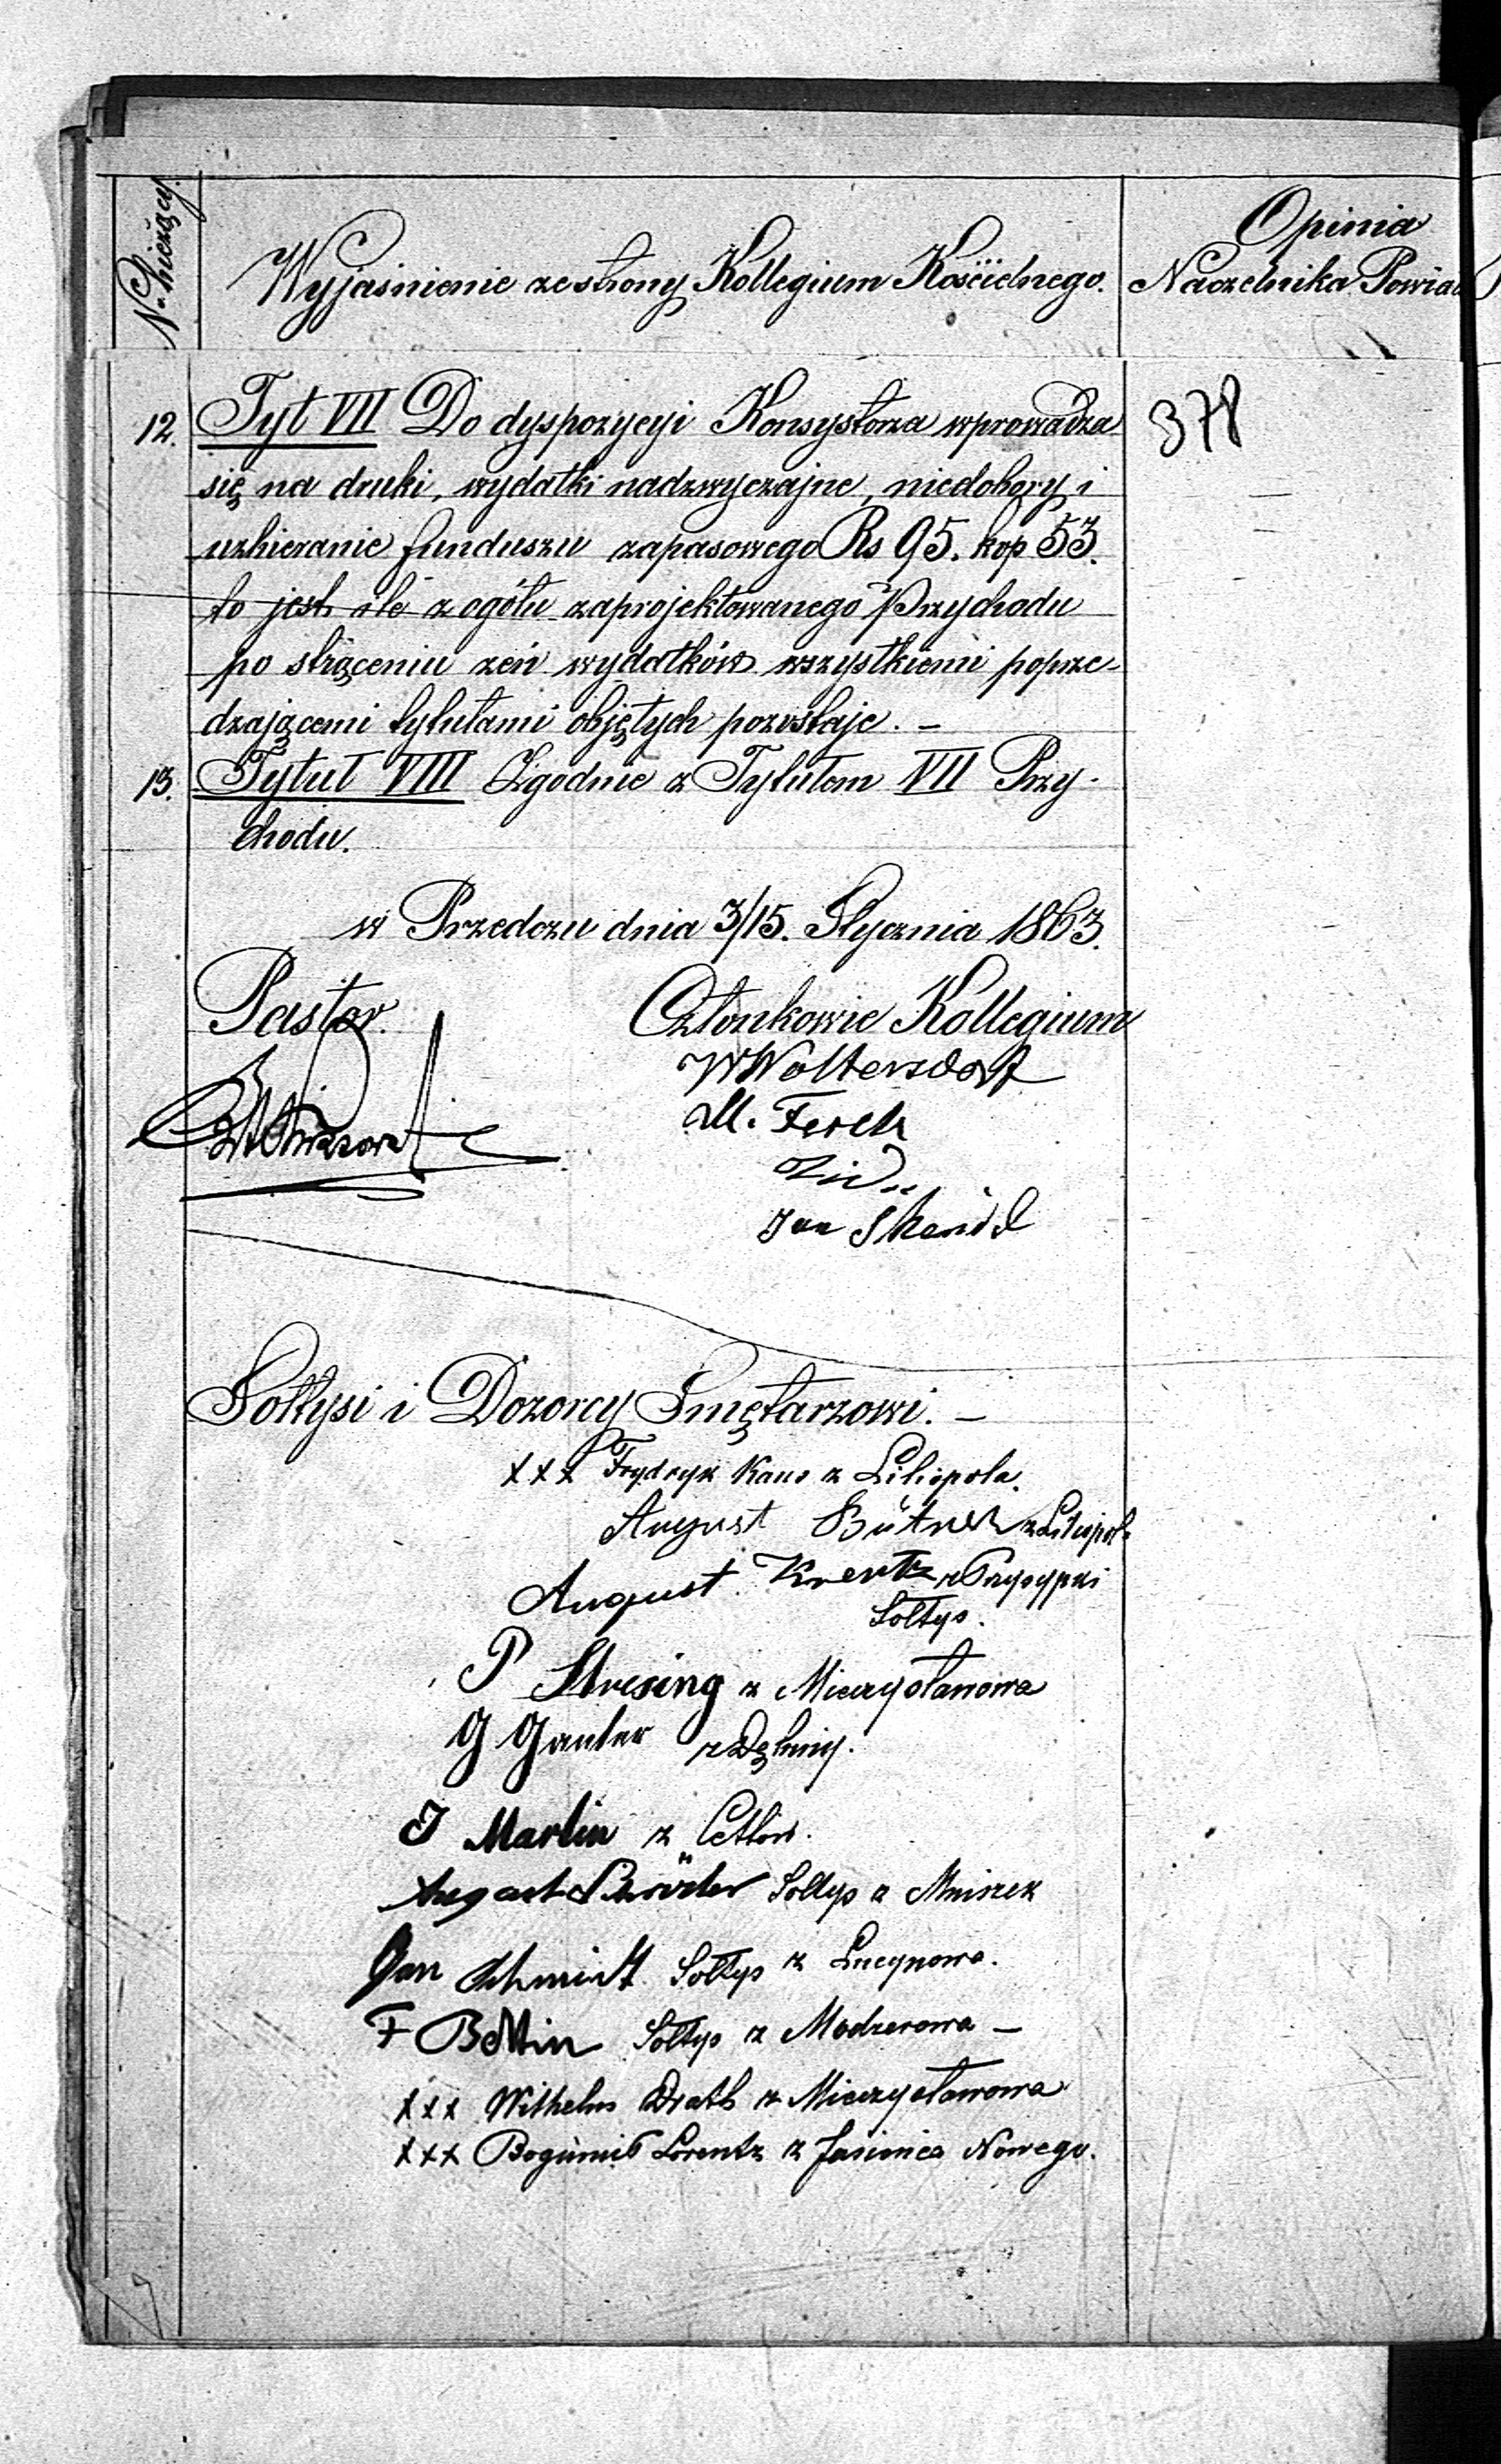 N. bieżący.
Wyjaśnienie ze strony Kollegium Kościelnego.
Opinia
Naczelnika Powiatu
12. Tyt VII Do dyspozycyi Konsystorza wprowadza
378
się na druki, wydatki nadzwyczajne, niedobory i
uzbieranie funduszu zapasowego Rs 95. kop 53.
to jest ile z ogółu zaprojektowanego Przychodu
po strąceniu zeń wydatków wszystkiemi poprze-
dzającemi tytułami objętych pozostaje. –
13. Tytuł VIII Zgodnie z Tytułem VII Przy-
chodu.
w Przedczu dnia 3/15. Stycznia 1863.
Pastor.
Członkowie Kollegium
W Woltersdorf
M. Ferch
Jan
Sołtysi i Dozorcy Smętarzowi. –
xxx Frydryk Kaus z Liliopola.
August Bütner z Liliopola
August Krentz z Przysypki
Sołtys.
P Stresing z Mieczysławowa
G Ganter z Dębiny.
J Martin z Cetlow.
August Schröder Sołtys z Mniszek
Jan Schmidt Sołtys z Lucynowa.
F Bettin Sołtys z Modzerowa –
xxx Wilhelm Drath z Mieczysławowa
xxx Bogumił Lorentz z Jasieńca Nowego.